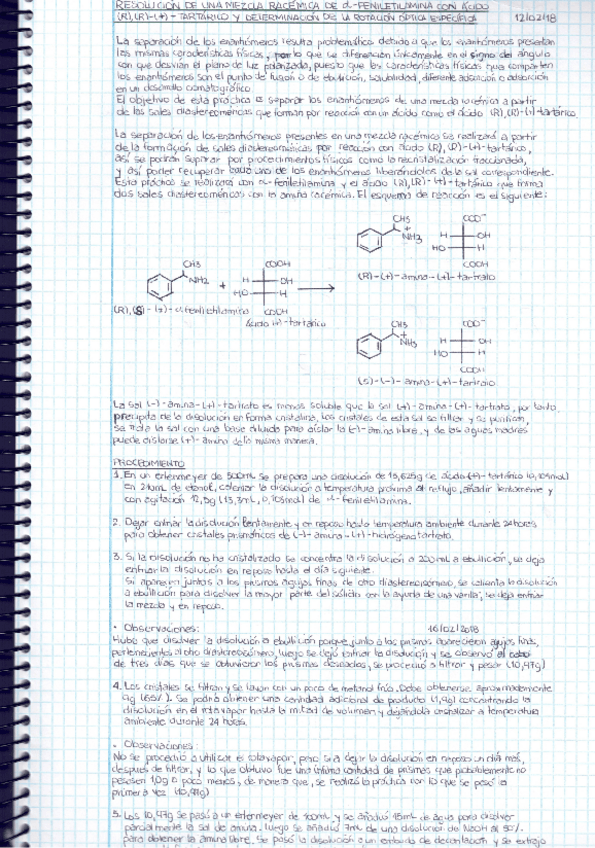 RESOLUCIÓN DE UNA MEZCLA RACÉMICA DE α-FENILETILAMINA CON ÁCIDO
(R),(R)-(+)-TARTÁRICO Y DETERMINACIÓN DE LA ROTACIÓN ÓPTICA ESPECÍFICA 12/02/18
La separación de los enantiómeros resulta problemática debido a que los enantiómeros presentan
las mismas características físicas, por lo que se diferencian únicamente en el signo del ángulo
con que desvían el plano de luz polarizada, puesto que las características físicas que comparten
los enantiómeros son el punto de fusión o de ebullición, solubilidad, diferente adsorción o absorción
en un desarrollo cromatográfico.
El objetivo de esta práctica es separar los enantiómeros de una mezcla racémica a partir
de las sales diastereoméricas que forman por reacción con un ácido como el ácido (R),(R)-(+)-tartárico.
La separación de los enantiómeros presentes en una mezcla racémica se realizará a partir
de la formación de sales diastereoméricas por reacción con ácido (R),(R)-(+)-tartárico,
así se podrán separar por procedimientos físicos como la recristalización fraccionada,
y así poder recuperar cada uno de los enantiómeros liberándolos de la sal correspondiente.
Esta práctica se realizará con α-feniletilamina y el ácido (R),(R)-(+)-tartárico que forma
dos sales diastereoméricas con la amina racémica. El esquema de reacción es el siguiente:
CH3 COO⁻
+
NH3 H OH
HO H
COOH
(R)-(+)-amina-(+)-tartrato
CH3 COOH
NH2 + H OH
HO H
(R),(S)-(±)-α-feniletilamina COOH
Ácido (+)-tartárico
CH3 COO⁻
+
NH3 H OH
HO H
COOH
(S)-(-)-amina-(+)-tartrato
La sal (-)-amina-(+)-tartrato es menos soluble que la sal (+)-amina-(+)-tartrato, por tanto,
precipita de la disolución en forma cristalina. Los cristales de esta sal se filtran y se purifican,
se trata la sal con una base diluida para aislar la (-)-amina libre, y de las aguas madres
puede aislarse (+)-amina de la misma manera.
PROCEDIMIENTO
1. En un erlenmeyer de 500mL se prepara una disolución de 15,625g de ácido (+)-tartárico (0,104mol)
en 210mL de etanol, calentar la disolución a temperatura próxima al reflujo, añadir lentamente y
con agitación 12,5g (13,3mL, 0,103mol) de α-feniletilamina.
2. Dejar enfriar la disolución lentamente y en reposo hasta temperatura ambiente durante 24 horas
para obtener cristales prismáticos de (-)-amina-(+)-hidrógeno tartrato.
3. Si la disolución no ha cristalizado se concentra la disolución a 200mL a ebullición, se deja
enfriar la disolución en reposo hasta el día siguiente.
Si aparecen juntos a los prismas agujas finas de otro diastereoisómero, se calienta la disolución
a ebullición para disolver la mayor parte del sólido con la ayuda de una varilla, se deja enfriar
la mezcla y en reposo.
• Observaciones: 16/02/2018
Hubo que disolver la disolución a ebullición porque junto a los prismas aparecieron agujas finas,
pertenecientes al otro diastereoisómero, luego se dejó enfriar la disolución y se observó al cabo
de tres días que se obtuvieron los prismas deseados, se procedió a filtrar y pesar (10,47g)
4. Los cristales se filtran y se lavan con un poco de metanol frío. Debe obtenerse aproximadamente
9g (65%). Se podría obtener una cantidad adicional de producto (1,4g) concentrando la
disolución en el rotavapor hasta la mitad de volumen y dejándola cristalizar a temperatura
ambiente durante 24 horas.
• Observaciones:
No se procedió a utilizar el rotavapor, pero sí a dejar la disolución en reposo un día más,
después de filtrar, y lo que obtuvo fue una ínfima cantidad de prismas que probablemente no
pesasen 1,0g o poco menos, de manera que, se realizó la práctica con lo que se pesó la
primera vez (10,47g)
5. Los 10,47g se pasó a un erlenmeyer de 100mL y se añadió 45mL de agua para disolver
parcialmente la sal de amina. Luego se añadió 7mL de una disolución de NaOH al 50%
para obtener la amina libre. Se pasó la disolución a un embudo de decantación y se extrajo